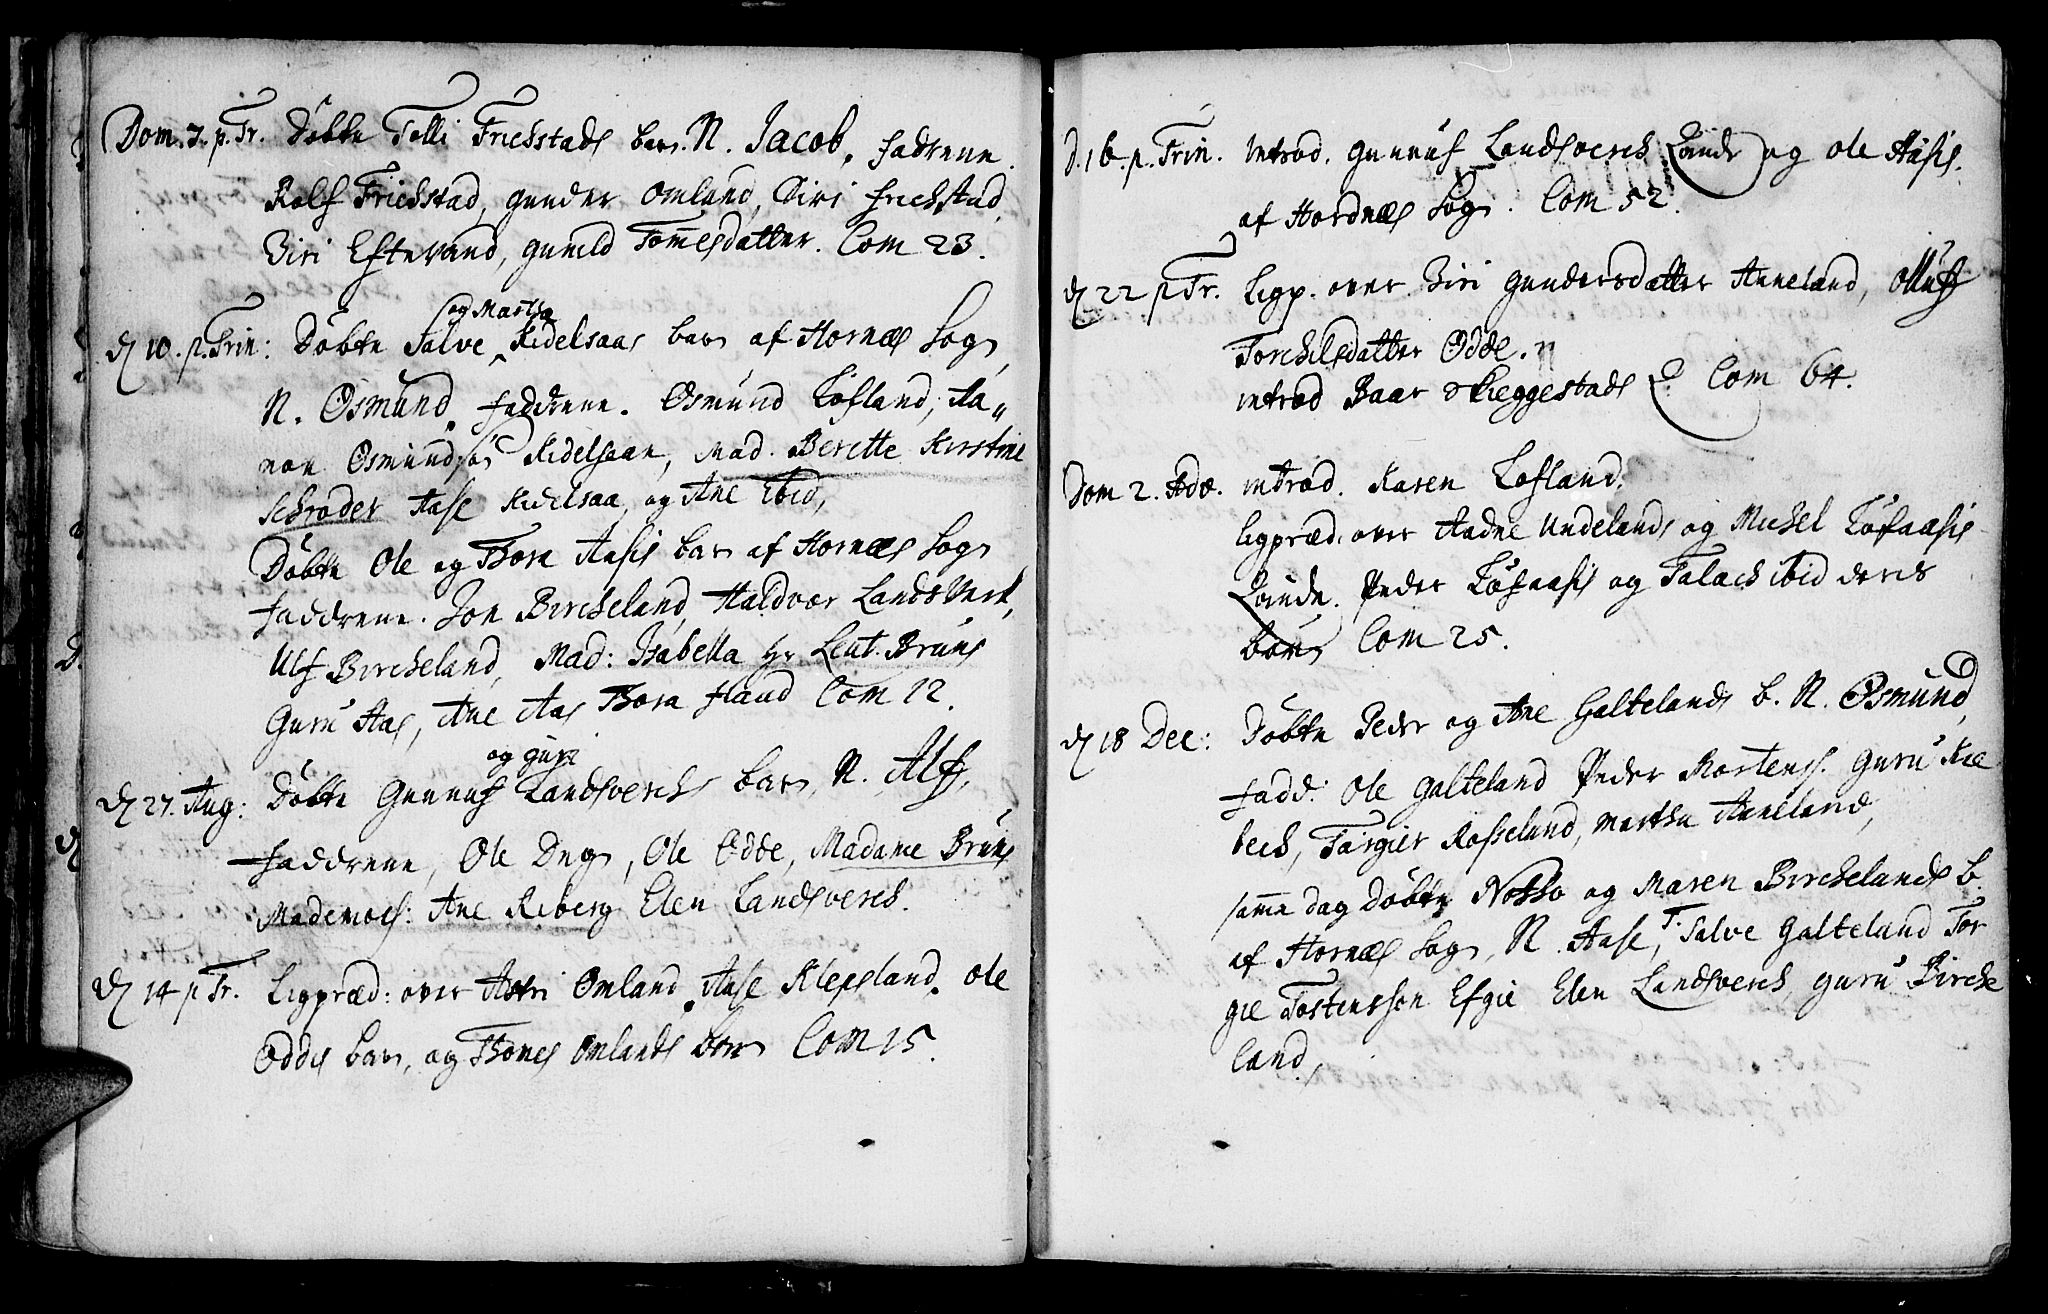 Dom. 7. p. Tr. Døbte Tolli Frichstads barn N. Jacob, fadrene.
Rolf Frichstad, gunder Omland, Siri frichstad,
Siri Eftevand, gunild Tomesdatter. Com 23.
D 10. p. Trin: Døbte Salve og Martha Kidelsaas barn af Hornæs Sogn
N. Osmund, faddrene. Osmund Løfland, Aa„
non Osmundsøn Kidelsaae, Mad. Berette Kirstine
Schrøder Aase Kidelsaa, og Ane Ibid,
Døbte Ole og Thora Aasis barn af Hornæs Sogn
faddrene. Jon Bircheland, Haldvor Landsverk,
Ulf Bircheland, Mad: Isabella hr Leut. Bruns
Guru Aas, Ane Aas Thora flaud Com 12.
D 27. Aug: Døbte Gunnuf og guri Landsverchs barn, N. Alf,
faddrene, Ole Degn, Ole Odde, Madame Bruns
Mademois: Ane Reberg Elen Landsverch.
D 14 p Tr. Ligpræd: over Omland, Aase Kleppland, Ole
Oddes barn, og Thores Omlands barn Com 15.
D. 16. p. Trin. introd. gunuf Landsverchs Qvinde og Ole Aasis.
af Hordnæs Sogn. Com 52.
D 22 p Tr. Ligp. over Siri gundersdatter Anneland,
Torchilsdatter Odde.
introd Baar Skeggestads Q. Com 64.
Dom 2. Adv. introd. Karen Løfland,
ligpræd. over Aadne Undelands og Michel Løfaasis
Qvinde. Peder Løfaasis og Talach ibid deris
børn Com 25.
D 18 Dec: Døbte Peder og Ane Galtelands b. N. Osmund,
fadd: Ole Galteland Peder Mortens. Guru Kie
bech, Targier Rosseland, Martha Anneland,
samme dag Døbte Notto og Maren Birchelands b.
af Hornæs Sogn, N. Aase, F. Salve Galteland Tor
gie Tostensson Efgie Elen Landsverch, guru Birche
land,